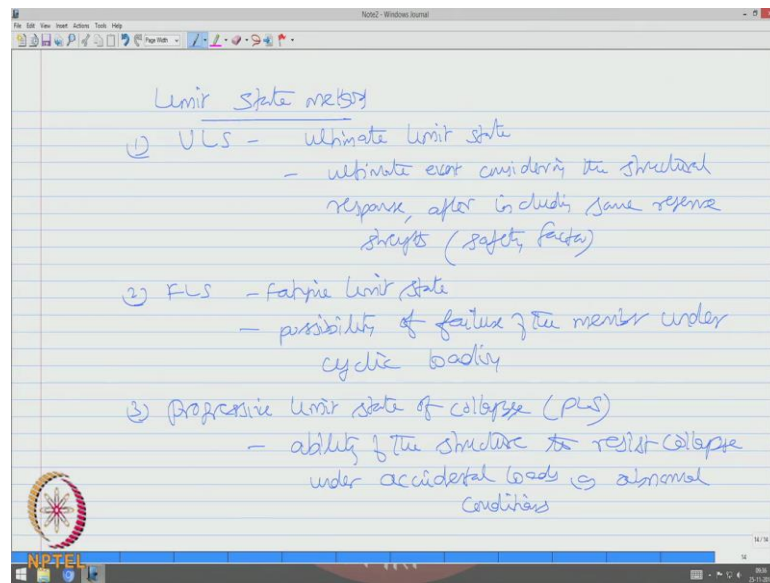 Note2 - Windows Journal
File Edit View Insert Actions Tools Help
Page Width
Limit state method
① ULS - ultimate limit state
- ultimate event considering the structural
response, after including some reserve
strength (safety factor)
② FLS - fatigue limit state
- possibility of failure of the member under
cyclic loading
③ Progressive limit state of collapse (PLS)
- ability of the structure to resist collapse
under accidental loads abnormal
conditions
14/14
14
NPTEL
09:36
25-11-20